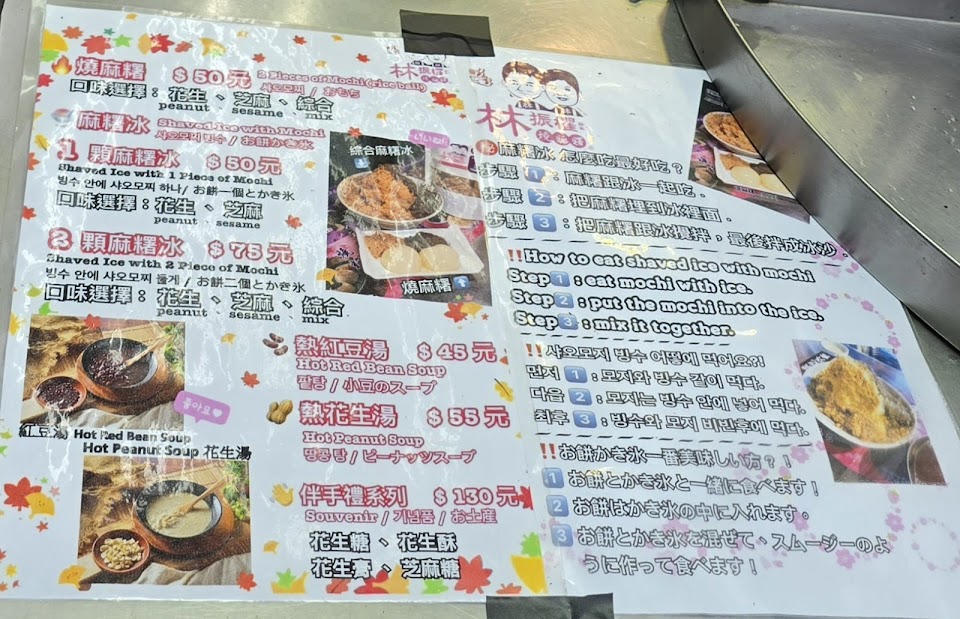 燒麻糬 $50元 2 Pieces of Mochi(rice ball)
샤오모찌 / おもち
口味選擇：花生、芝麻、綜合
peanut sesame mix
麻糬冰 Shaved Ice with Mochi
샤오모찌 빙수 / お餅かき氷
1 顆麻糬冰 $50元
Shaved Ice with 1 Piece of Mochi
빙수 안에 샤오모찌 하나/ お餅一個とかき氷
口味選擇：花生、芝麻
peanut sesame
2 顆麻糬冰 $75元
Shaved Ice with 2 Piece of Mochi
빙수 안에 샤오모찌 둘게 / お餅二個とかき氷
口味選擇：花生、芝麻、綜合
peanut sesame mix
綜合麻糬冰
燒麻糬
좋아요
紅豆湯 Hot Red Bean Soup
Hot Peanut Soup 花生湯
熱紅豆湯 $45元
Hot Red Bean Soup
팥탕 / 小豆のスープ
熱花生湯 $55元
Hot Peanut Soup
땅콩 탕 / ピーナッツスープ
伴手禮系列 $130元
Souvenir / 기념품 / お土産
花生糖、花生酥
花生膏、芝麻糖
林振櫂
麻糬冰 怎麼吃最好吃？
步驟 1：麻糬跟冰一起吃.
步驟 2：把麻糬埋到冰裡面.
步驟 3：把麻糬跟冰攪拌，最後拌成冰沙.
!!How to eat shaved ice with mochi
Step 1 : eat mochi with ice.
Step 2 : put the mochi into the ice.
Step 3 : mix it together.
!!샤오모지 빙수 어떻에 먹어요?!
먼저 1 : 모지와 빙수 같이 먹다.
다음 2 : 모지는 빙수 안에 넣어 먹다.
최후 3 : 빙수와 모지 비빈후에 먹다.
!!お餅かき氷一番美味しい方？！
1 お餅とかき氷と一緒に食べます！
2 お餅はかき氷の中に入れます。
3 お餅とかき氷を混ぜて、スムージーのよ
うに作って食べます！